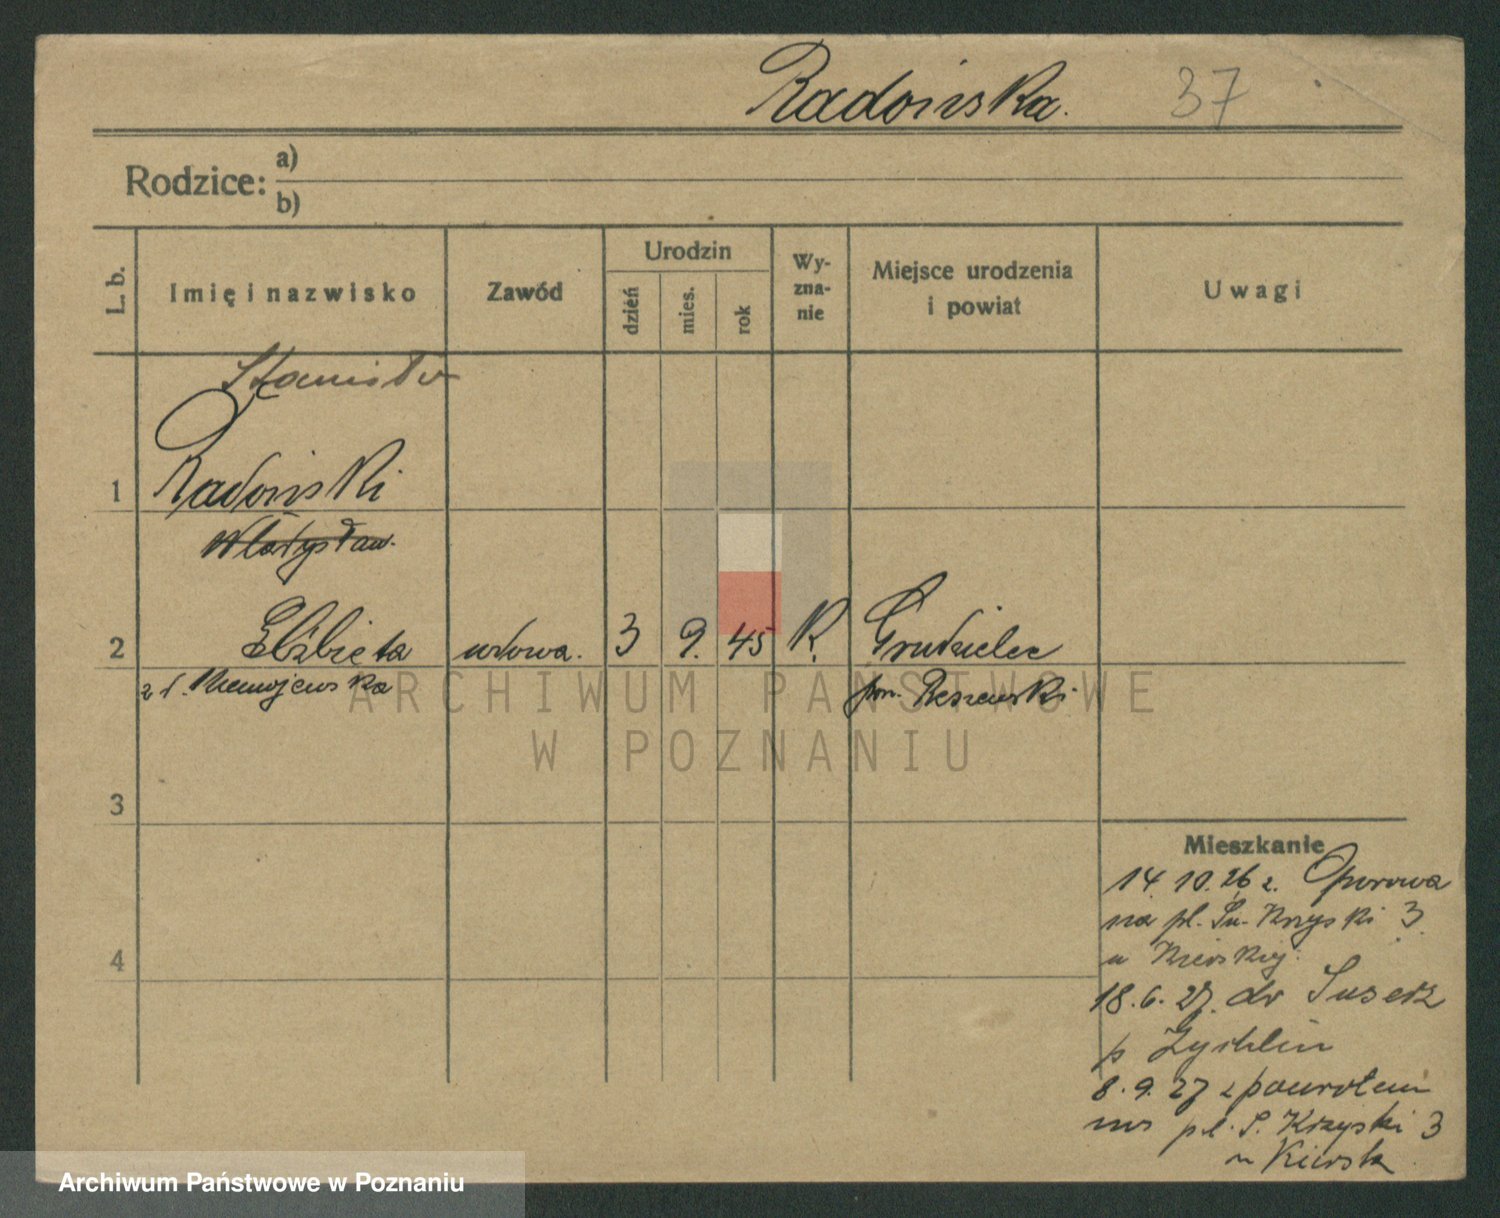 Radońska. 37
Rodzice: a)
b)
L. b. Imię i nazwisko Zawód Urodzin dzień mies. rok Wy-zna-nie Miejsce urodzenia i powiat Uwagi
Stanisław
1 Radoński
Władysław.
2 Elżbieta wdowa. 3 9. 45 R. Grudzielec
z d. Niemojewska pow. Pleszewski
ARCHIWUM PAŃSTWOWE
W POZNANIU
3
Mieszkanie
14 10.26 z. Oporowa
na pl. Św. Krzyski 3
4
u Kierskiej.
18.6.27. do Suserz
p Żychlin
8.9.27 z powrotem
na pl. S. Krzyski 3
u Kierska
Archiwum Państwowe w Poznaniu